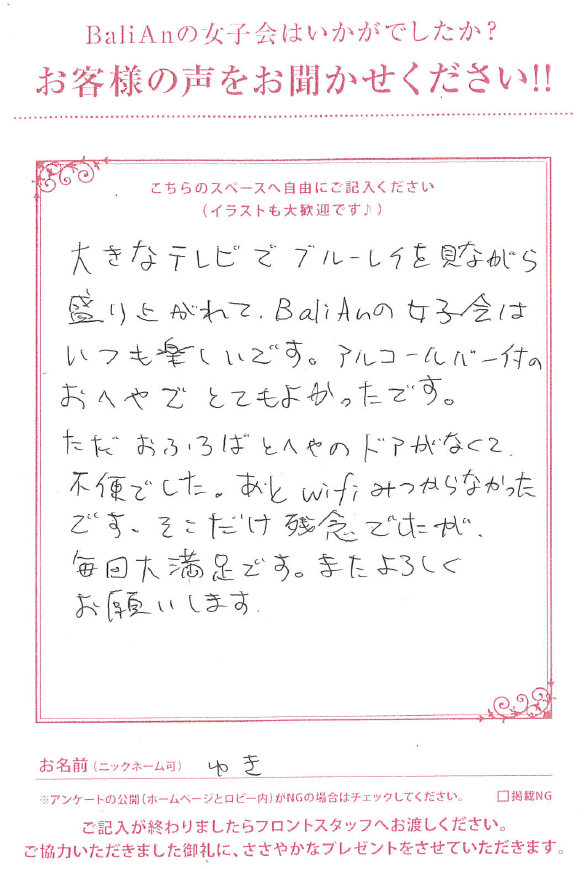 BaliAnの女子会はいかがでしたか?
お客様の声をお聞かせください!!
こちらのスペースへ自由にご記入ください
(イラストも大歓迎です♪)
大きなテレビでブルーレイを見ながら
盛り上がれて、BaliAnの女子会は
いつも楽しいです。アルコールバー付の
おへやでとてもよかったです。
ただおふろばとへやのドアがなくて、
不便でした。あとwifiみつからなかった
です、そこだけ残念でしたが、
毎回大満足です。またよろしく
お願いします.
お名前(ニックネーム可) ゆき
※アンケートの公開(ホームページとロビー内)がNGの場合はチェックしてください。 □掲載NG
ご記入が終わりましたらフロントスタッフへお渡しください。
ご協力いただきました御礼に、ささやかなプレゼントをさせていただきます。